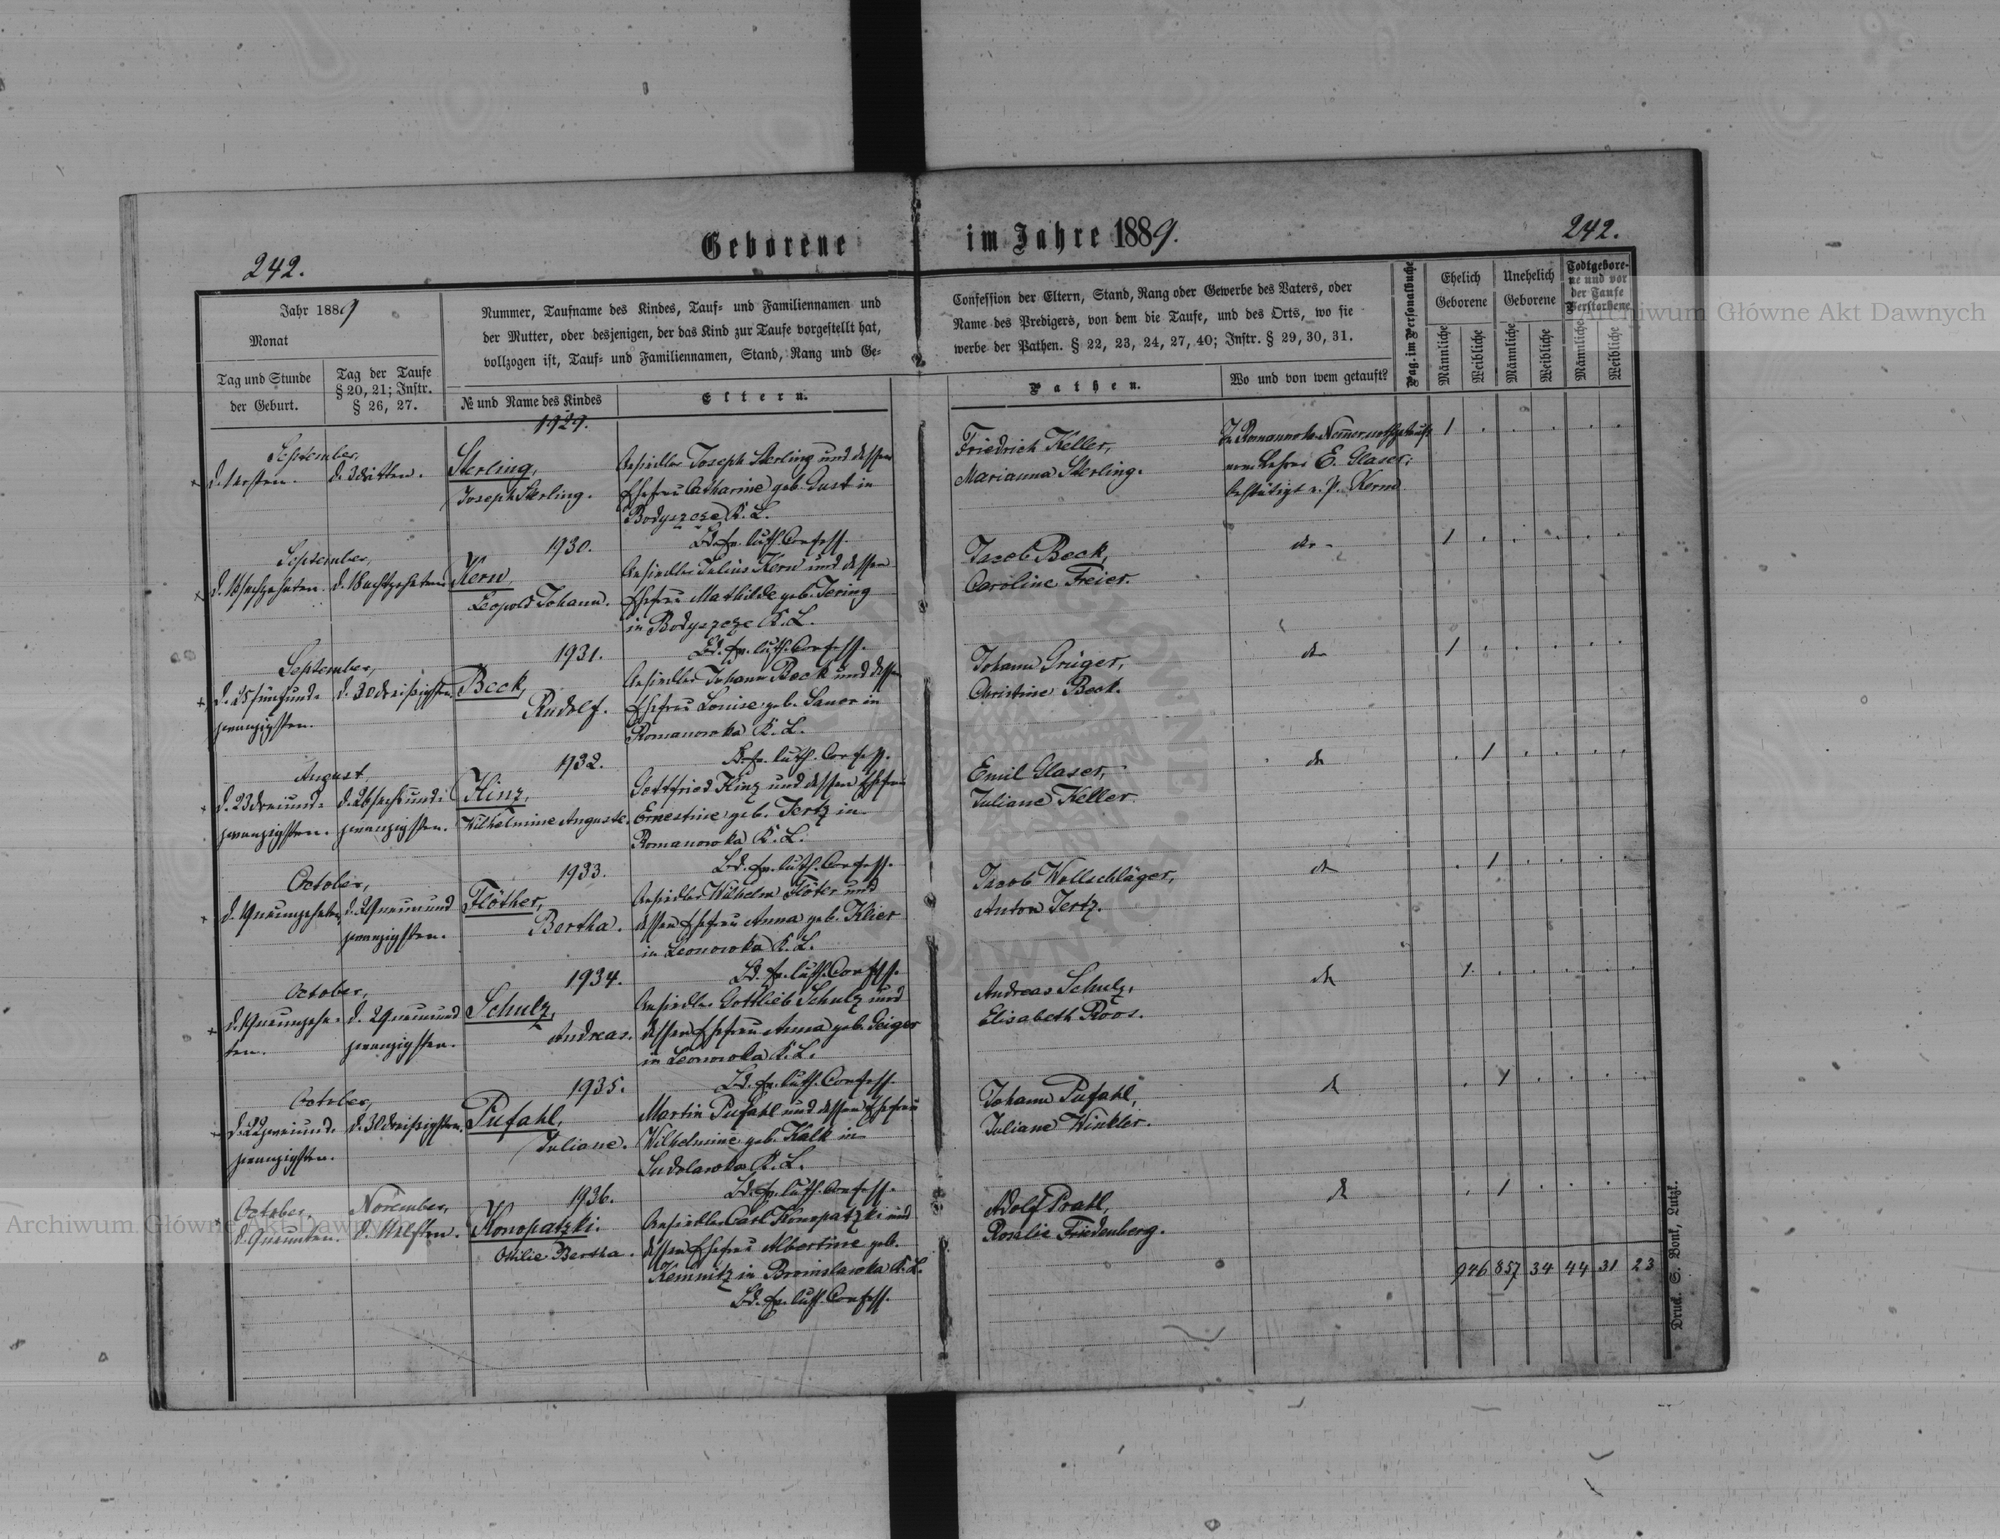 Geborene im Jahre 1889.
242.
242.
Jahr 1889
Monat
Tag und Stunde
der Geburt.
Tag der Taufe
§ 20, 21; Instr.
§ 26, 27.
Nummer, Taufname des Kindes, Tauf- und Familiennamen und
der Mutter, oder desjenigen, der das Kind zur Taufe vorgestellt hat,
vollzogen ist, Tauf- und Familiennamen, Stand, Rang und Ge-
№ und Name des Kindes
Eltern.
Confession der Eltern, Stand, Rang oder Gewerbe des Vaters, oder
Name des Predigers, von dem die Taufe, und des Orts, wo sie
werbe der Pathen. § 22, 23, 24, 27, 40; Instr. § 29, 30, 31.
Pathen.
Wo und von wem getauft?
Pag. im Personalbuche
Ehelich
Geborene
Unehelich
Geborene
Todtgebore-
ne und vor
der Taufe
Verstorbene
Männliche
Weibliche
Männliche
Weibliche
Männliche
Weibliche
1929.
September,
d. 1 ersten. d. 3 dritten.
Sterling,
Joseph Sterling.
Ansiedler Joseph Sterling und dessen
Ehefrau Catharine geb. Just in
Bodyszcze K. L.
Bd. ev. luth. Confess.
Friedrich Keller,
Marianna Sterling.
In Romanowka
vom Lehrer E. Glaser,
bestätigt v. P. Kern
1
1930.
September,
d. 16 sechzehnten. d. 18 achtzehnten.
Kern,
Leopold Johann.
Ansiedler Julius Kern und dessen
Ehefrau Mathilde geb. Jering
in Bodyszcze K. L.
Bd. ev. luth. Confess.
Jacob Beck,
Caroline Freier.
do
1
1931.
September,
d. 25 fünfund- d. 30 dreißigsten.
zwanzigsten.
Beck,
Rudolf.
Ansiedler Johann Beck und dessen
Ehefrau Louise geb. Sauer in
Romanowka K. L.
B. ev. luth. Confess.
Johann Grüger,
Christine Beck.
do
1
1932.
August,
d. 23 dreiund- d. 26 sechsund-
zwanzigsten. zwanzigsten.
Hinz,
Wilhelmine Auguste.
Gottfried Hinz und dessen Ehefrau
Ernestine geb. Jertz in
Romanowka K. L.
Bd. ev. luth. Confess.
Emil Glaser,
Juliane Keller.
do
1
1933.
October,
d. 19 neunzehnten d. 29 neunund
zwanzigsten.
Flöther,
Bertha.
Ansiedler Wilhelm Flöter und
dessen Ehefrau Anna geb. Klier
in Leonowka K. L.
Bd. ev. luth. Confess.
Jacob Wollschläger,
Anton Jertz.
do
1
1934.
October,
d. 19 neunzehn- d. 29 neunund
ten. zwanzigsten.
Schulz,
Andreas.
Ansiedler Gottlieb Schulz und
dessen Ehefrau Anna geb. Geiger
in Leonowka K. L.
Bd. ev. luth. Confess.
Andreas Schulz,
Elisabeth Roos.
do
1
1935.
October,
d. 22 zweiund- d. 30 dreißigsten.
zwanzigsten.
Pufahl,
Juliane.
Martin Pufahl und dessen Ehefrau
Wilhelmine geb. Kalk in
Sudolawka K. L.
Bd. ev. luth. Confess.
Johann Pufahl,
Juliane Winkler.
do
1
1936.
October, November,
d. 9 neunten. d. 11 elften.
Konopatzki.
Ottilie Bertha.
Ansiedler Carl Konopatzki und
dessen Ehefrau Albertine geb.
Kemnitz in Bronislawka K. L.
Bd. ev. luth. Confess.
Adolf Prahl,
Rosalie Friedenberg.
do
1
946 857 34 44 31 23
Druck. S. Bonk, Lutzk.
Archiwum Główne Akt Dawnych
Archiwum Główne Akt Dawnych